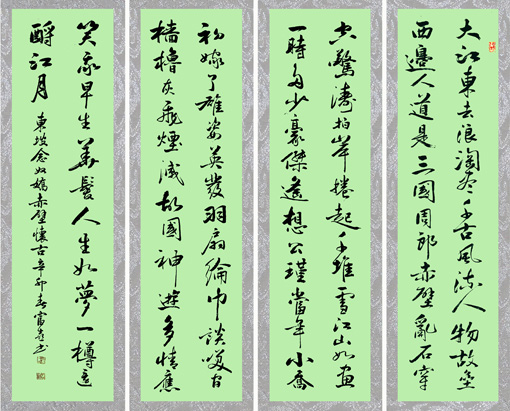 大江東去浪淘盡千古風流人物故壘
西邊人道是三國周郎赤壁亂石穿
空驚濤拍岸捲起千堆雪江山如畫
一時多少豪傑遙想公瑾當年小喬
初嫁了雄姿英發羽扇綸巾談笑間
檣櫓灰飛煙滅故國神遊多情應
笑我早生華髮人生如夢一樽還
酹江月 東坡念奴嬌赤壁懷古辛卯春富书